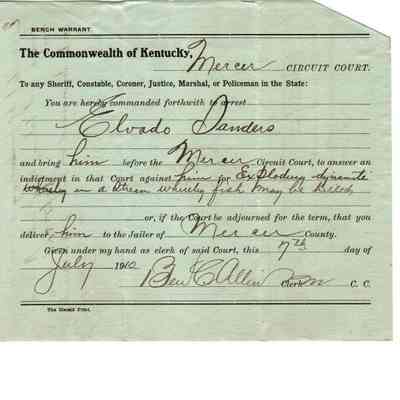 BENCH WARRANT.
The Commonwealth of Kentucky, Mercer CIRCUIT COURT.
To any Sheriff, Constable, Coroner, Justice, Marshal, or Policeman in the State:
You are hereby commanded forthwith to arrest
Elvado Sanders
and bring him before the Mercer Circuit Court, to answer an
indictment in that Court against him for Exploding dynamite
in a Stream whereby fish may be killed
or, if the Court be adjourned for the term, that you
deliver him to the Jailer of Mercer County.
Given under my hand as clerk of said Court, this 7th day of
July 1910 Ben C Allin Clerk C. C.
The Herald Print.